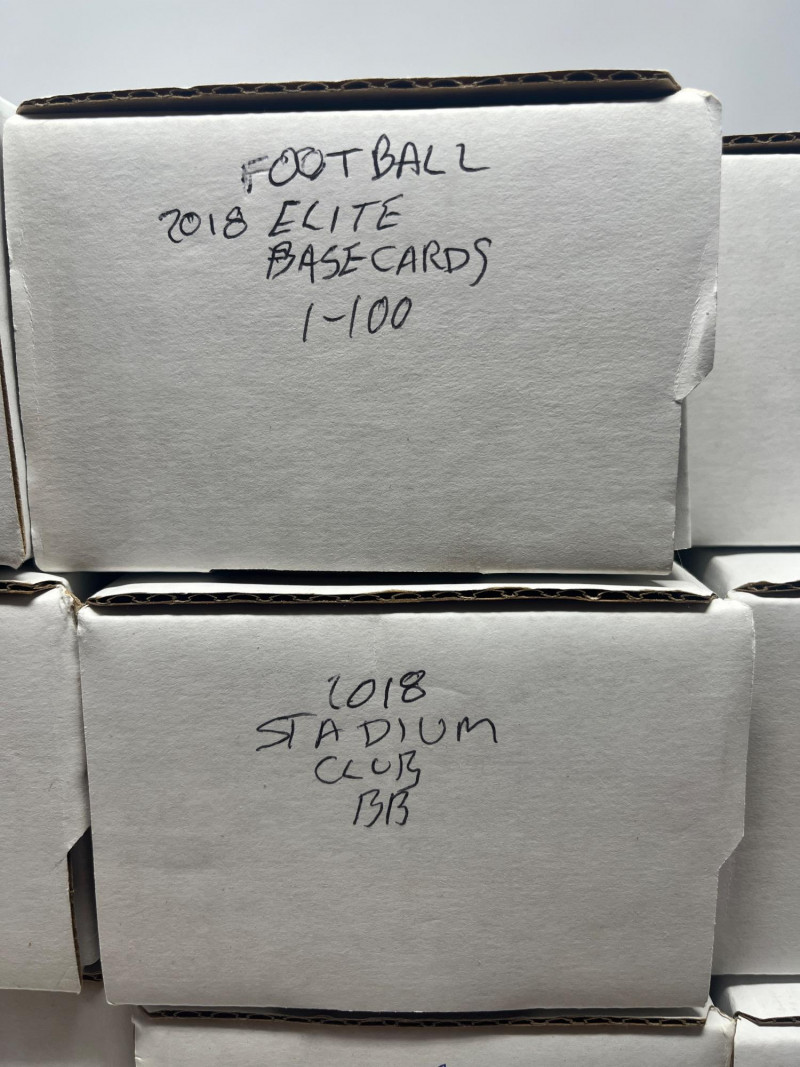 FOOTBALL
2018 ELITE
BASECARDS
1-100
2018
STADIUM
CLUB
BB